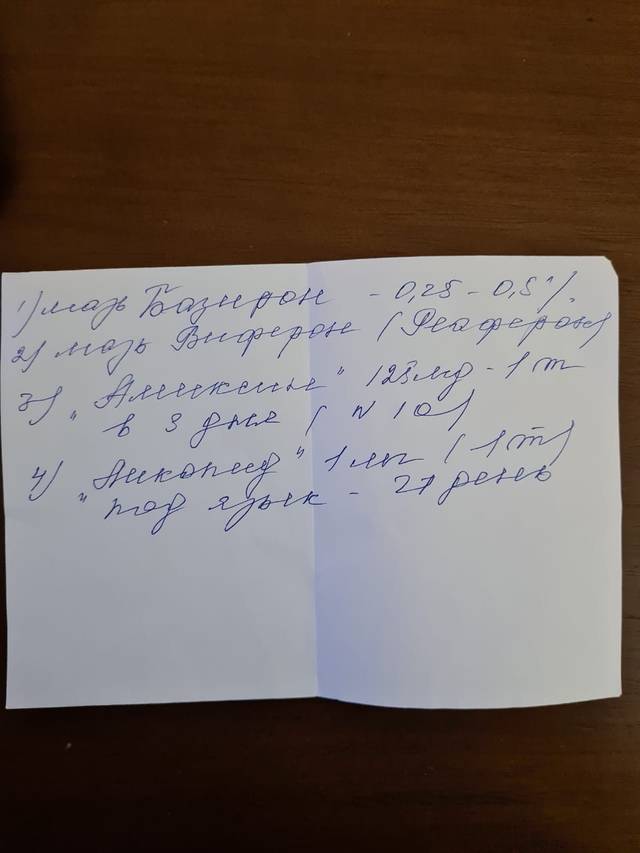 1) мазь Базирон - 0,25 - 0,5%
2) мазь Виферон (Реаферон)
3) "Амиксин" 125мд - 1 т
в 3 дня ( N 10)
4) "Ликопид" 1 мг (1 т)
под язык - 21 день